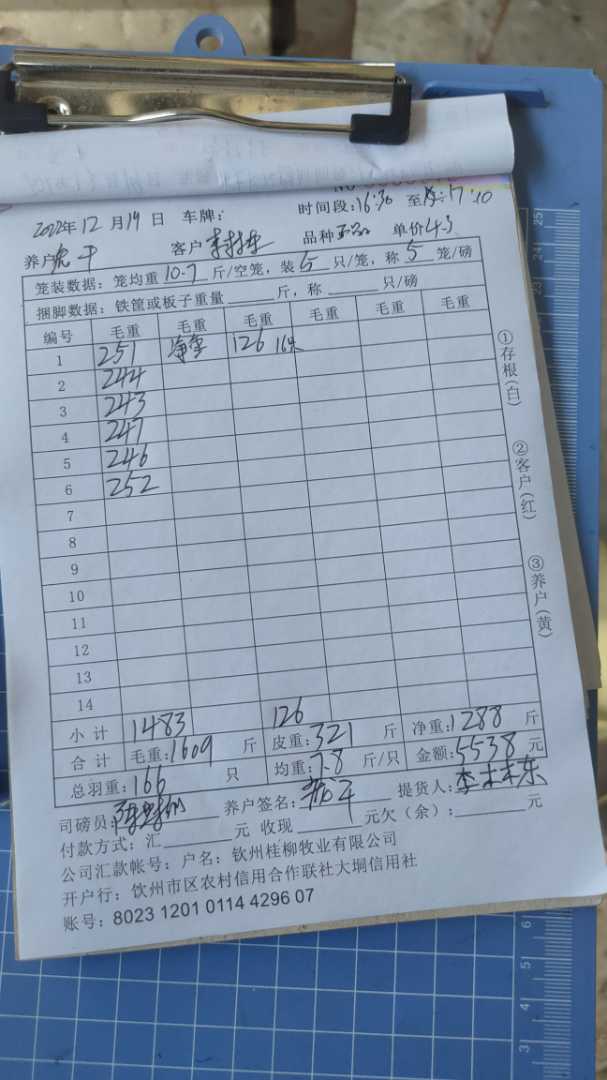 2022年12月19日 车牌： 时间段:16:30 至 17:10
养户 客户 品种 单价4.3
笼装数据：笼均重10.7斤/空笼，装5只/笼，称5笼/磅
捆脚数据：铁筐或板子重量____斤，称____只/磅
编号 毛重 毛重 毛重 毛重 毛重 毛重
1 251 净重 126 16只
2 244
3 243
4 247
5 246
6 252
7
8
9
10
11
12
13
14
小计 1483 126
合计 毛重:1609斤 皮重:321斤 净重:1288斤
总羽重:166只 均重:7.8斤/只 金额:5538元
司磅员: 养户签名: 提货人:李木东
付款方式：汇____元 收现____元欠（余）:____元
公司汇款帐号：户名：钦州桂柳牧业有限公司
开户行：钦州市区农村信用合作联社大垌信用社
账号：8023 1201 0114 4296 07
①存根(白)
②客户(红)
③养户(黄)
25
24
6
5
4
3